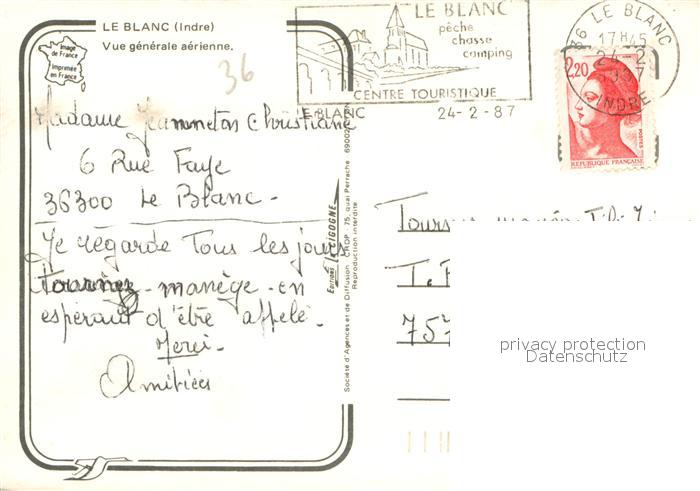 LE BLANC (Indre)
Vue générale aérienne.
Image de France
Imprimée en France
36
Madame Jeanneton Christiane
6 Rue Faye
36300 Le Blanc -
Je regarde Tous les jours
Tournez - manège - en
espérant d'être appelé -
Merci -
Amitiées
LE BLANC
pêche
chasse
camping
CENTRE TOURISTIQUE
LE BLANC 24-2-87
36 LE BLANC
17 H 45
24-2
1987
INDRE
2,20
POSTES
REPUBLIQUE FRANÇAISE
Editions "la CIGOGNE"
Société d'Agences et de Diffusion, CROP, 75, quai Perrache 69002
Reproduction interdite
T.
757
privacy protection
Datenschutz